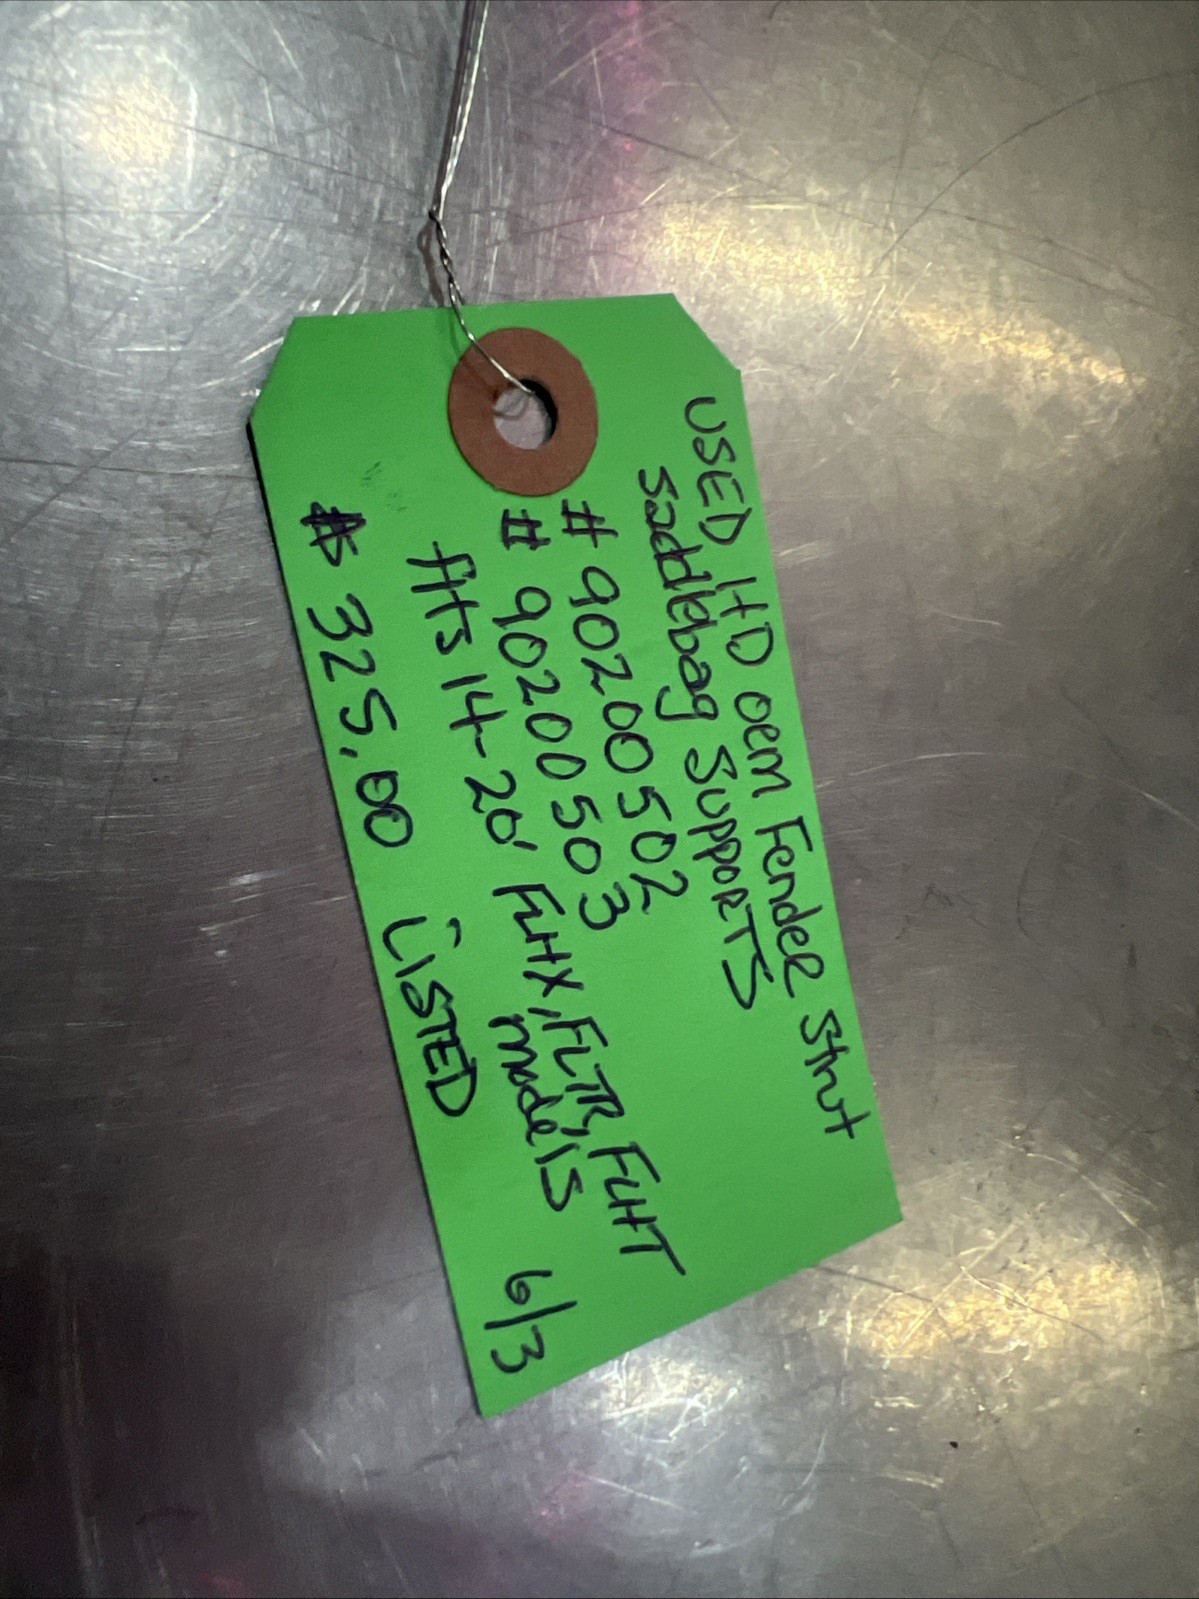 USED HD oem Fender strut
saddlebag SuppORTS
# 90200502
# 90200503
fits 14-20' FLHX, FLTR, FLHT
models
$ 325.00 LiSTED 6/3